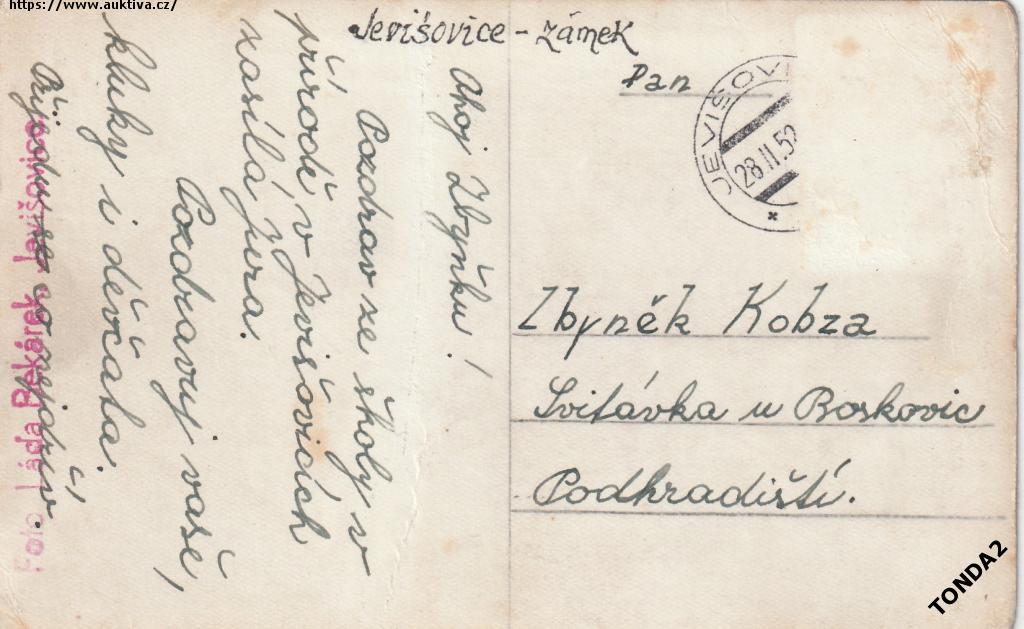 https://www.auktiva.cz/
Jevišovice - zámek
Pan
JEVIŠOVI
28.II.52
Zbyněk Kobza
Svitávka u Boskovic
Podhradiští.
Ahoj Zbyňku!
Pozdrav ze školy v
přírodě v Jevišovicích
zasílá Jura.
Pozdravuj vaše,
kluky i děvčata.
se co nejdřív.
Foto Láďa Pekárek Jevišovice
TONDA2